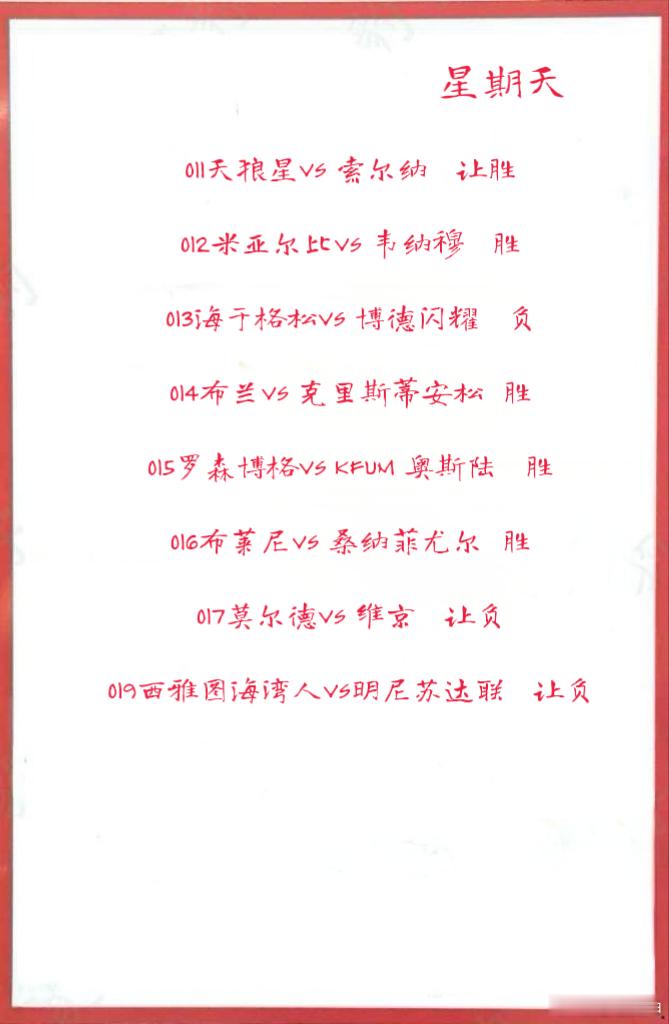 星期天
011天狼星VS 索尔纳 让胜
012米亚尔比VS 韦纳穆 胜
013海于格松VS 博德闪耀 负
014布兰VS 克里斯蒂安松 胜
015罗森博格VS KFUM 奥斯陆 胜
016布莱尼VS 桑纳菲尤尔 胜
017莫尔德VS 维京 让负
019西雅图海湾人VS明尼苏达联 让负